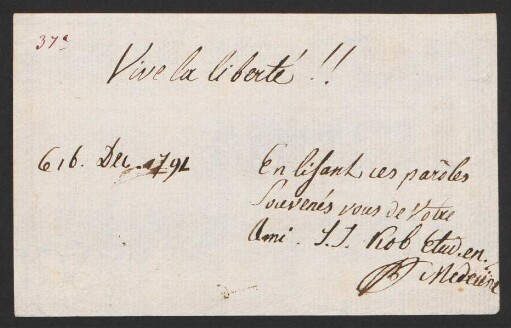 37a
Vive la liberté !!
16. Dec. 1791
En lisant ces paroles
Souvenés vous de Votre
Ami. J. J. Rob Etud. en.
Medecine